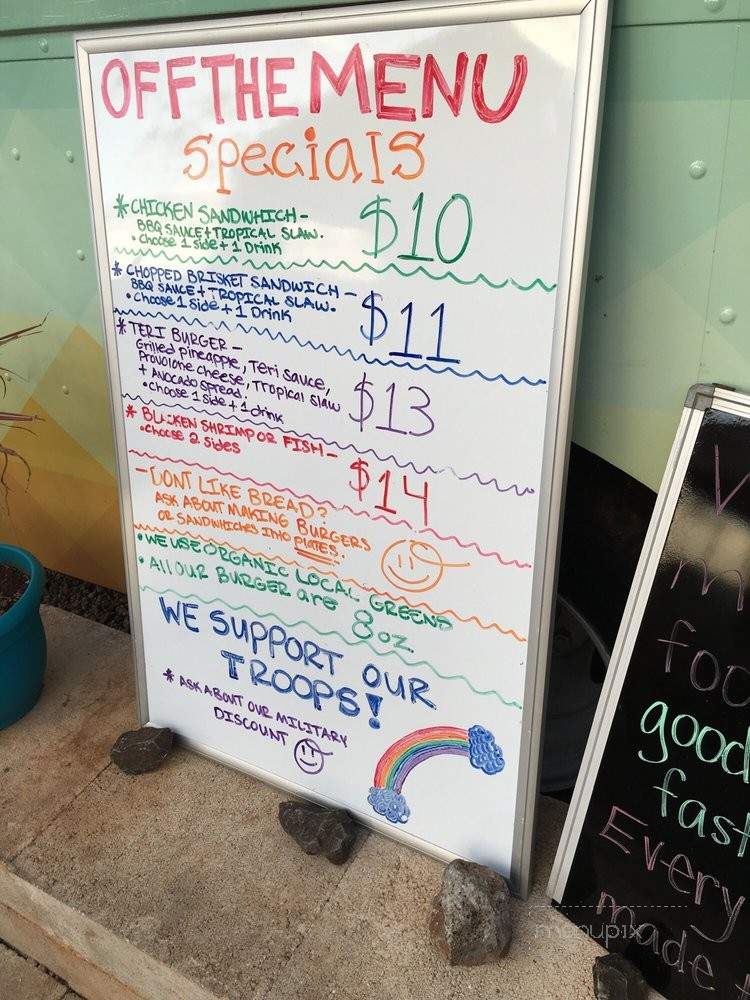 OFF THE MENU
specials
* CHICKEN SANDWHICH - $10
BBQ SAUCE + TROPICAL SLAW.
• Choose 1 side + 1 Drink
* CHOPPED BRISKET SANDWICH - $11
BBQ SAUCE + TROPICAL SLAW.
• Choose 1 side + 1 Drink
* TERI BURGER - $13
Grilled pineapple, Teri sauce,
Provolone cheese, Tropical slaw
+ Avocado spread.
• Choose 1 side + 1 drink
* SHRIMP OR FISH - $14
• Choose 2 sides
- DONT LIKE BREAD?
ASK ABOUT MAKING BURGERS
OR SANDWHICHES INTO PLATES.
• WE USE ORGANIC LOCAL GREENS
• All OUR BURGER are 8oz.
WE SUPPORT OUR
TROOPS!
* ASK ABOUT OUR MILITARY
DISCOUNT
good
fast
Every
made
menupix